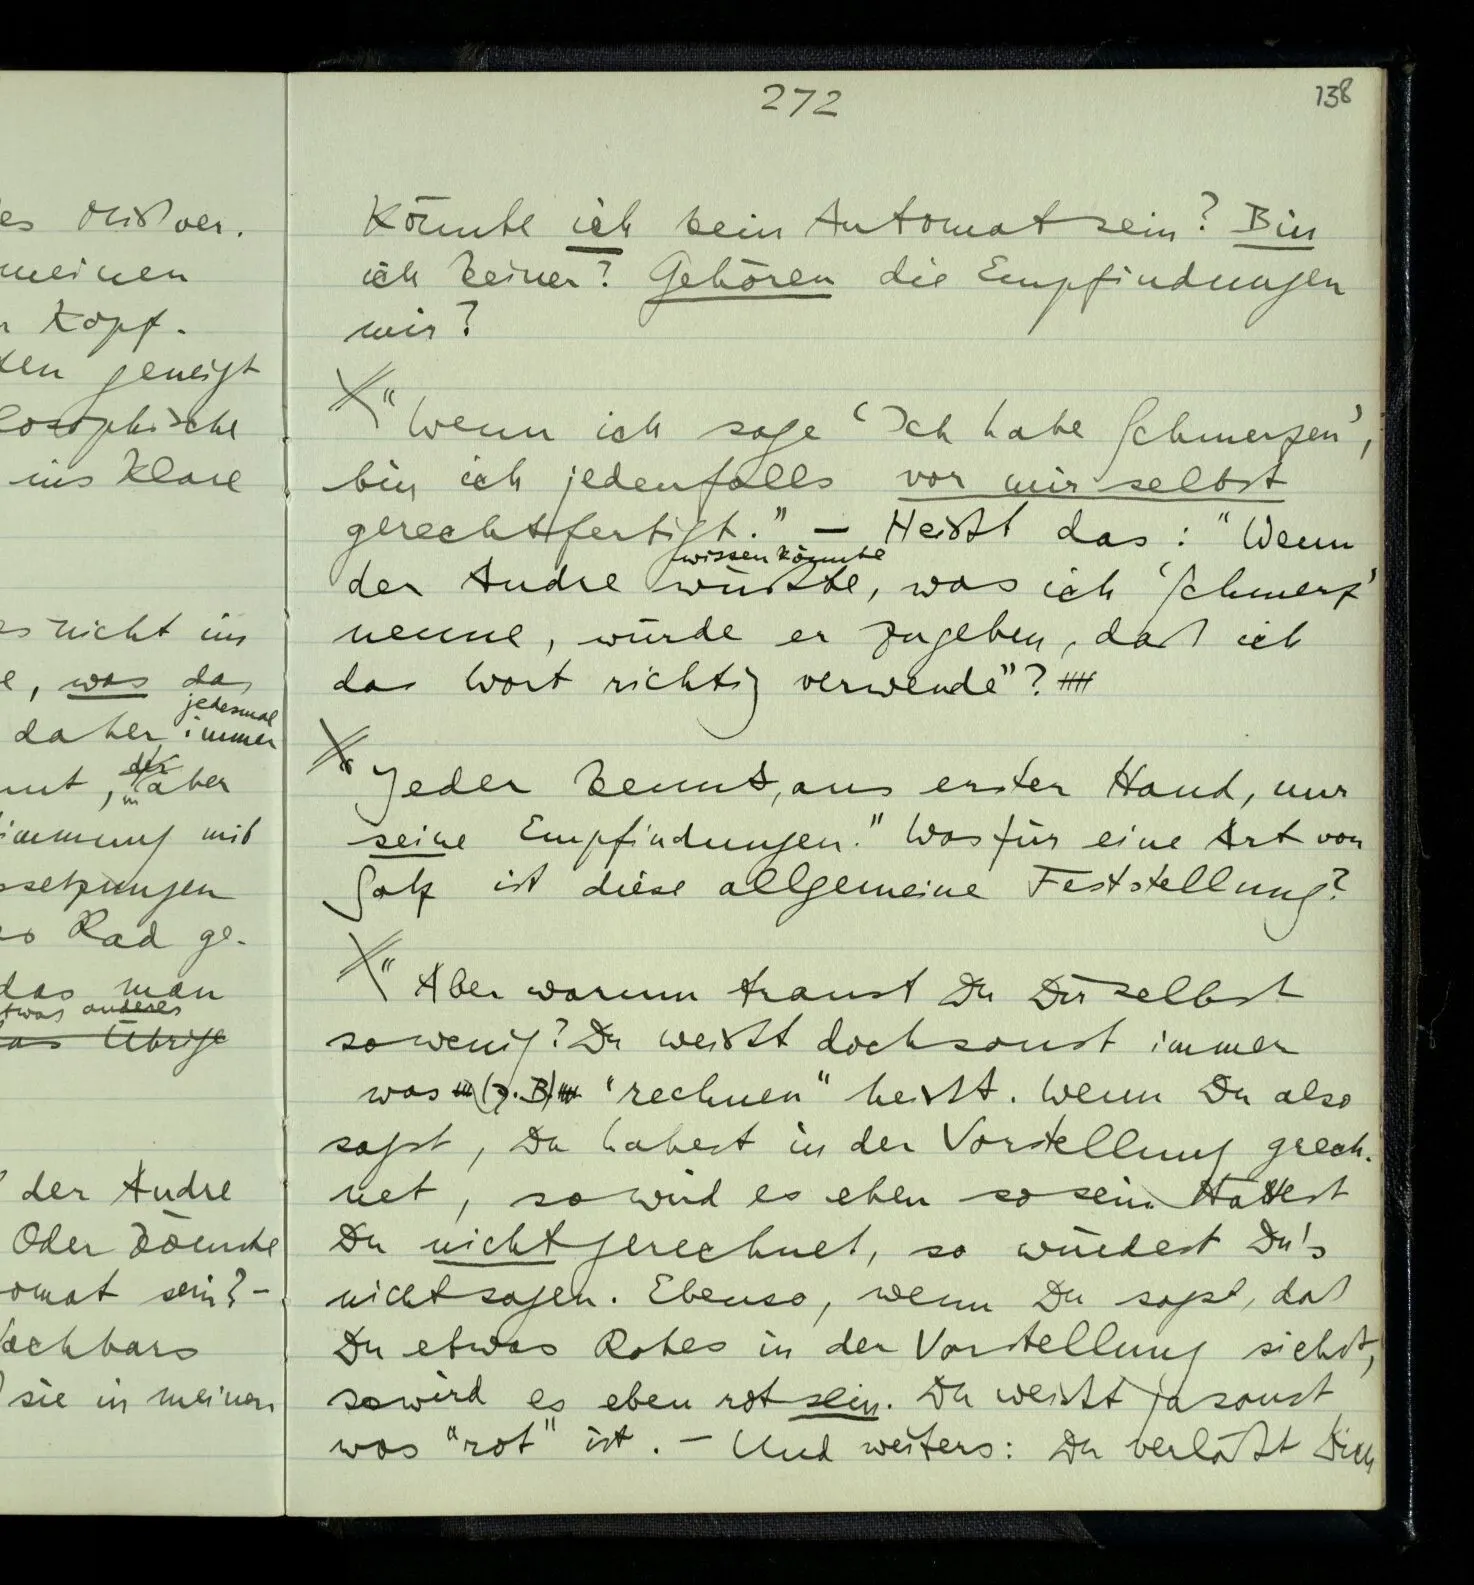 272
138
es Mißver-
meinen
Kopf.
geneigt
losophische
ins Klare
es nicht im
e, was das
jedesmal
daher immer
der
aber
immung mit
ssetzungen
Rad ge-
das man
etwas anderes
das Übrige
der Andre
Oder könnte
omat sein? –
Nachbars
sie in meinem
Könnte ich kein Automat sein? Bin
ich keiner? Gehören die Empfindungen
mir?
"Wenn ich sage 'Ich habe Schmerzen',
bin ich jedenfalls vor mir selbst
gerechtfertigt." – Heißt das: "Wenn
wissen könnte
der Andre wüßte, was ich 'Schmerz'
nenne, würde er zugeben, daß ich
das Wort richtig verwende"?
"Jeder kennt, aus erster Hand, nur
seine Empfindungen." Was für eine Art von
Satz ist diese allgemeine Feststellung?
"Aber warum traust Du Dir selbst
so wenig? Du weißt doch sonst immer
was (z.B) "rechnen" heißt. Wenn Du also
sagst, Du habest in der Vorstellung grech-
net, so wird es eben so sein. Hättest
Du nicht gerechnet, so würdest Du's
nicht sagen. Ebenso, wenn Du sagst, daß
Du etwas Rotes in der Vorstellung siehst,
so wird es eben rot sein. Du weißt ja sonst
was "rot" ist. – Und weiters: Du verläßt Dich